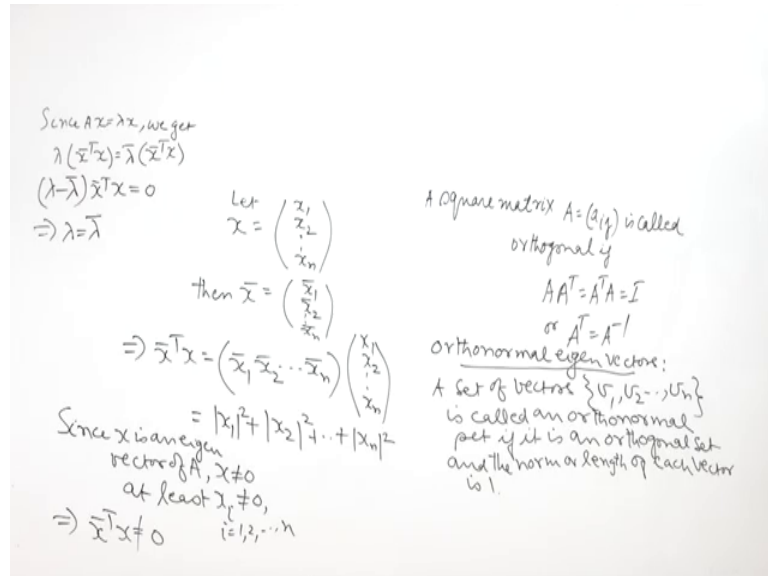 Since Ax=λx, we get
λ(x̄ᵀx)=λ̄(x̄ᵀx)
(λ-λ̄)x̄ᵀx=0
⇒ λ=λ̄
Let
x = (x₁
x₂
⋮
xₙ)
then x̄ = (x̄₁
x̄₂
⋮
x̄ₙ)
⇒ x̄ᵀx = (x̄₁ x̄₂ ⋯ x̄ₙ) (x₁
x₂
⋮
xₙ)
= |x₁|²+|x₂|²+⋯+|xₙ|²
Since x is an eigen
vector of A, x≠0
at least xᵢ≠0,
i=1,2,⋯n
⇒ x̄ᵀx≠0
A square matrix A=(aᵢⱼ) is called
orthogonal if
AAᵀ=AᵀA=I
or Aᵀ=A⁻¹
Orthonormal eigen vectors:
A set of vectors {v₁,v₂⋯,vₙ}
is called an orthonormal
set if it is an orthogonal set
and the norm or length of each vector
is 1.